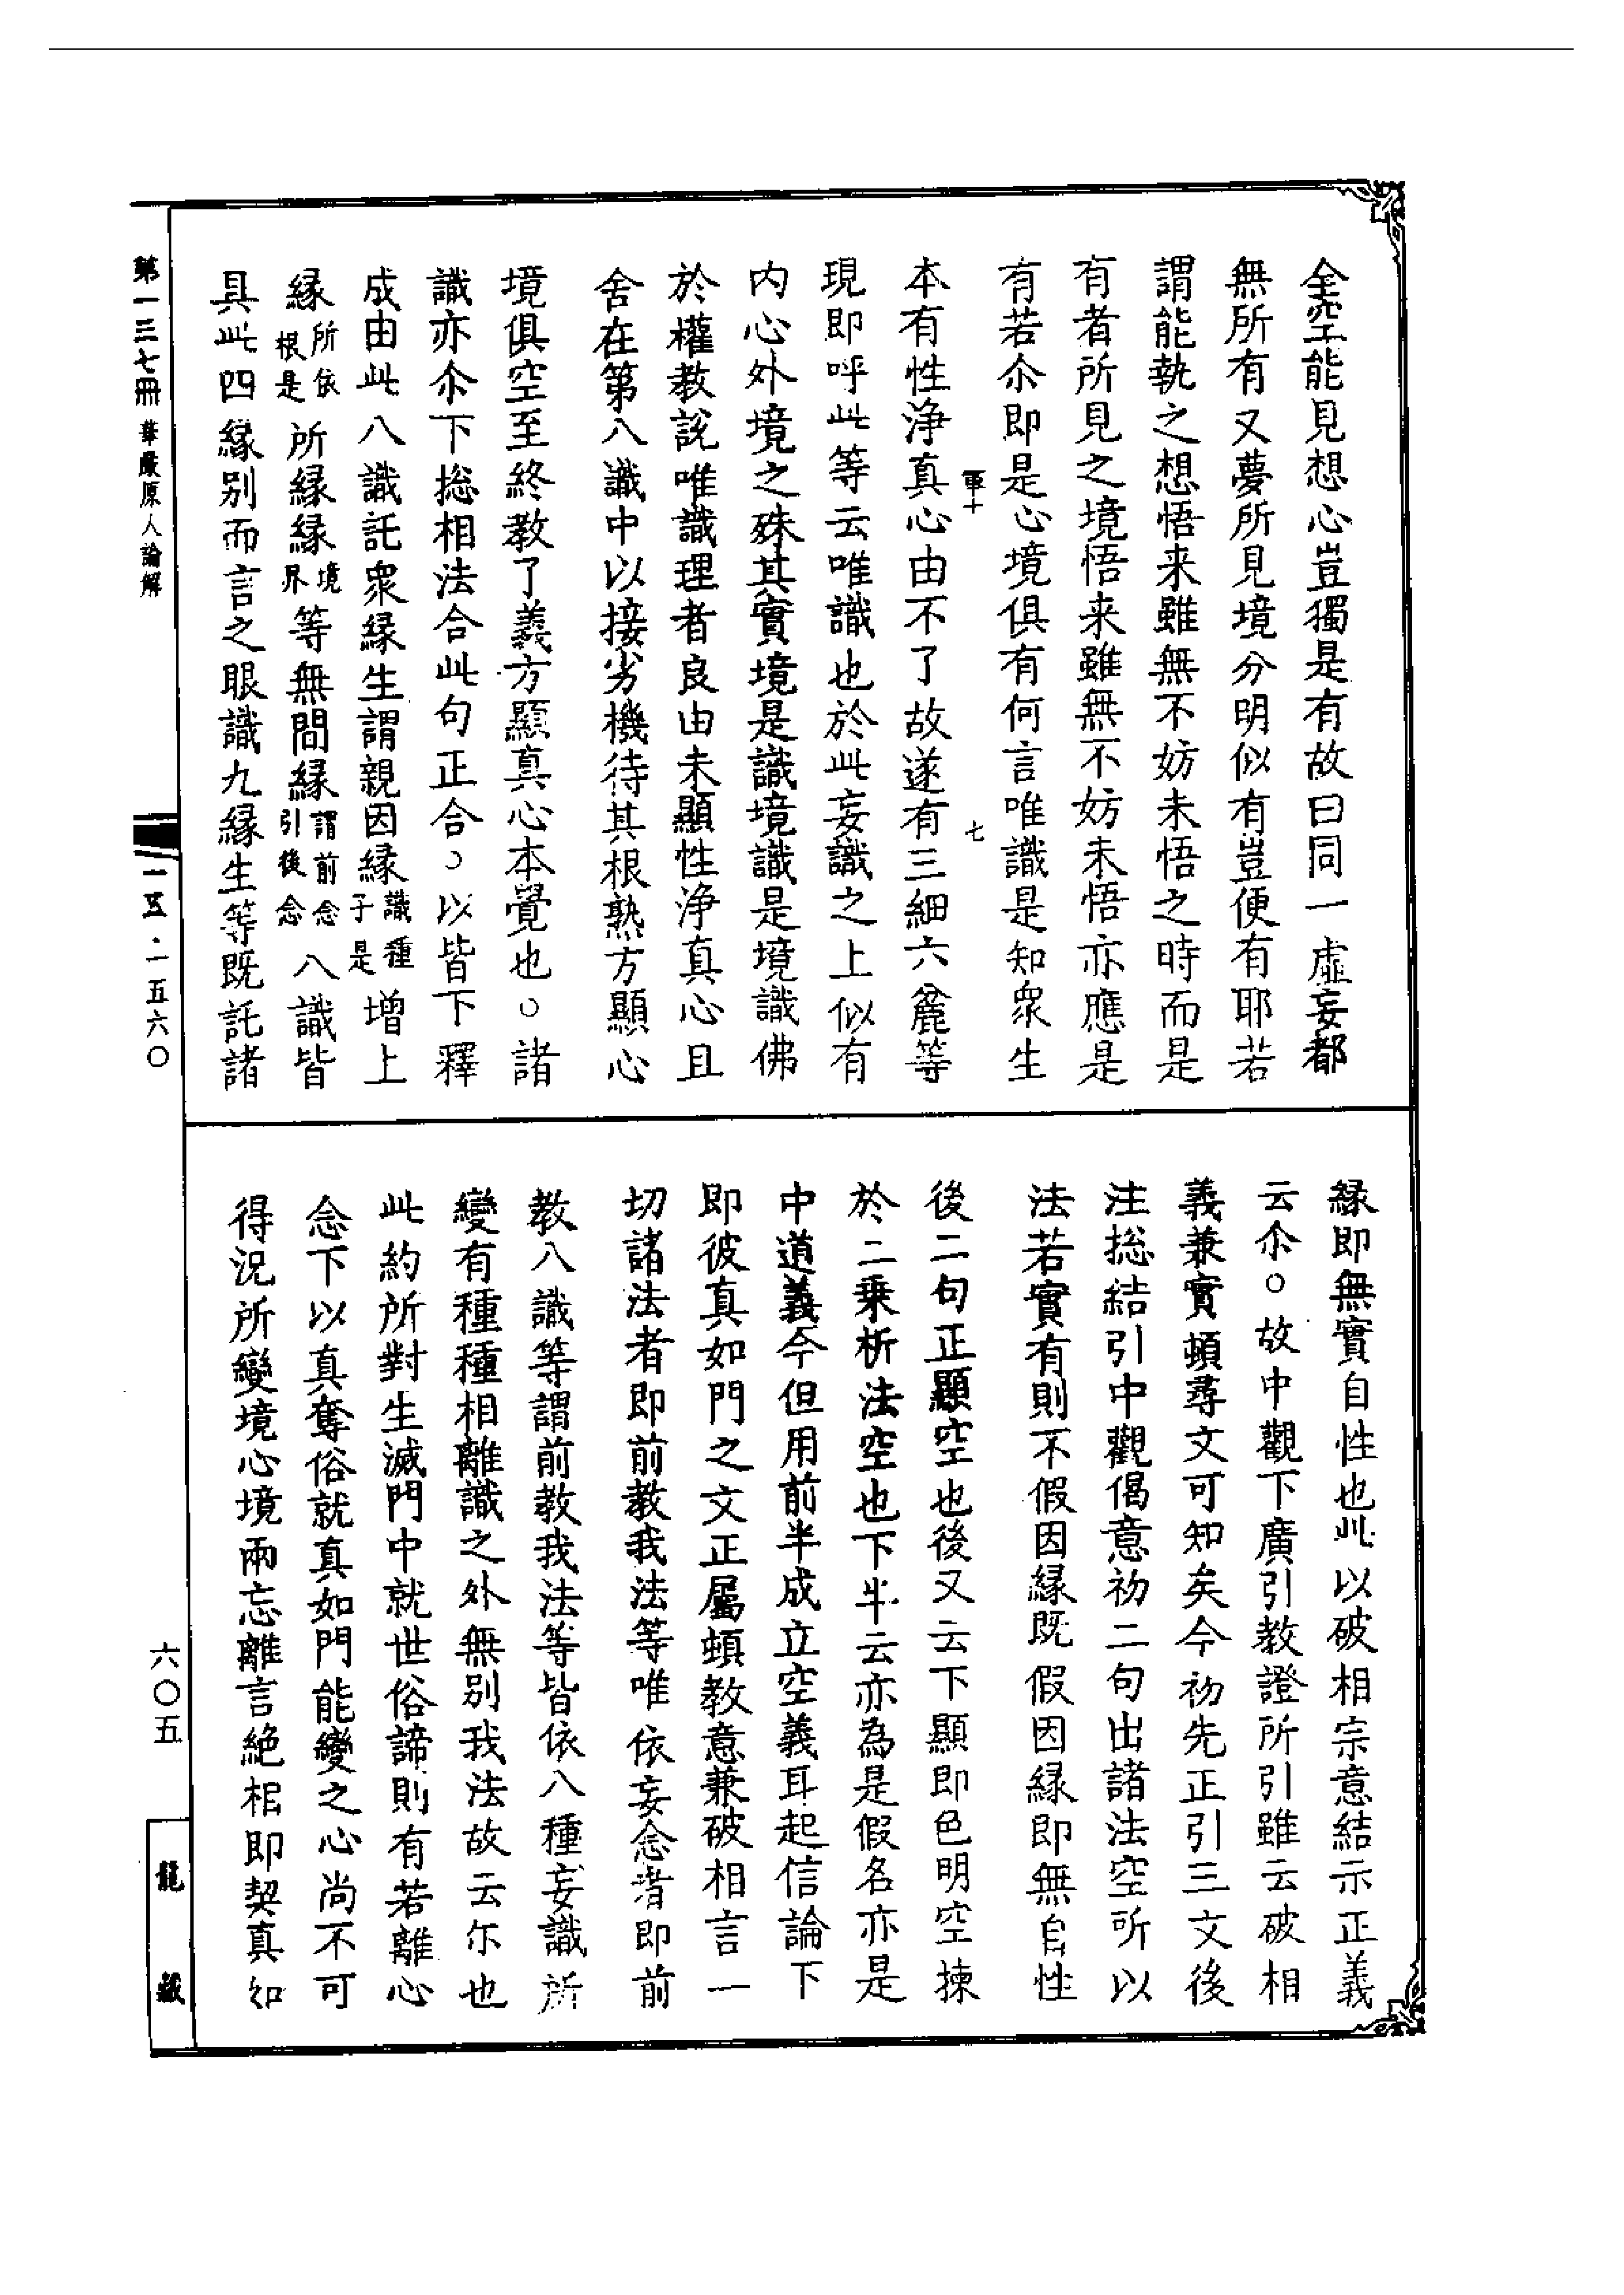 全空能見想心豈獨是有故曰同一虛妄都
無所有又夢所見境分明似有豈便有耶若
謂能執之想悟来雖無不妨未悟之時而是
有者所見之境悟来雖無不妨未悟亦應是
有若尒即是心境俱有何言唯識是知衆生
軍十 七
本有性淨真心由不了故遂有三細六麄等
現即呼此等云唯識也於此妄識之上似有
内心外境之殊其實境是識境識是境識佛
於權教說唯識理者良由未顯性淨真心且
舍在第八識中以接劣機待其根熟方顯心
境俱空至終教了義方顯真心本覺也○諸
識亦尒下捴相法合此句正合○以皆下釋
成由此八識託衆縁生謂親因縁識種子是增上
縁所依根是所縁縁境界等無間縁謂前念引後念八識皆
具此四縁別而言之眼識九縁生等既託諸
縁即無實自性也此以破相宗意結示正義
云尒○故中觀下廣引教證所引雖云破相
義兼實頓尋文可知矣今初先正引三文後
注捴結引中觀偈意初二句出諸法空所以
法若實有則不假因縁既假因縁即無自性
後二句正顯空也後又云下顯即色明空揀
於二乗析法空也下半云亦為是假名亦是
中道義今但用前半成立空義耳起信論下
即彼真如門之文正屬頓教意兼破相言一
切諸法者即前教我法等唯依妄念者即前
教八識等謂前教我法等皆依八種妄識所
變有種種相離識之外無別我法故云尓也
此約所對生滅門中就世俗諦則有若離心
念下以真奪俗就真如門能變之心尚不可
得況所變境心境兩忘離言絶相即契真如
第一三七冊 華嚴原人論解
一五·二五六〇
六〇五
龍藏